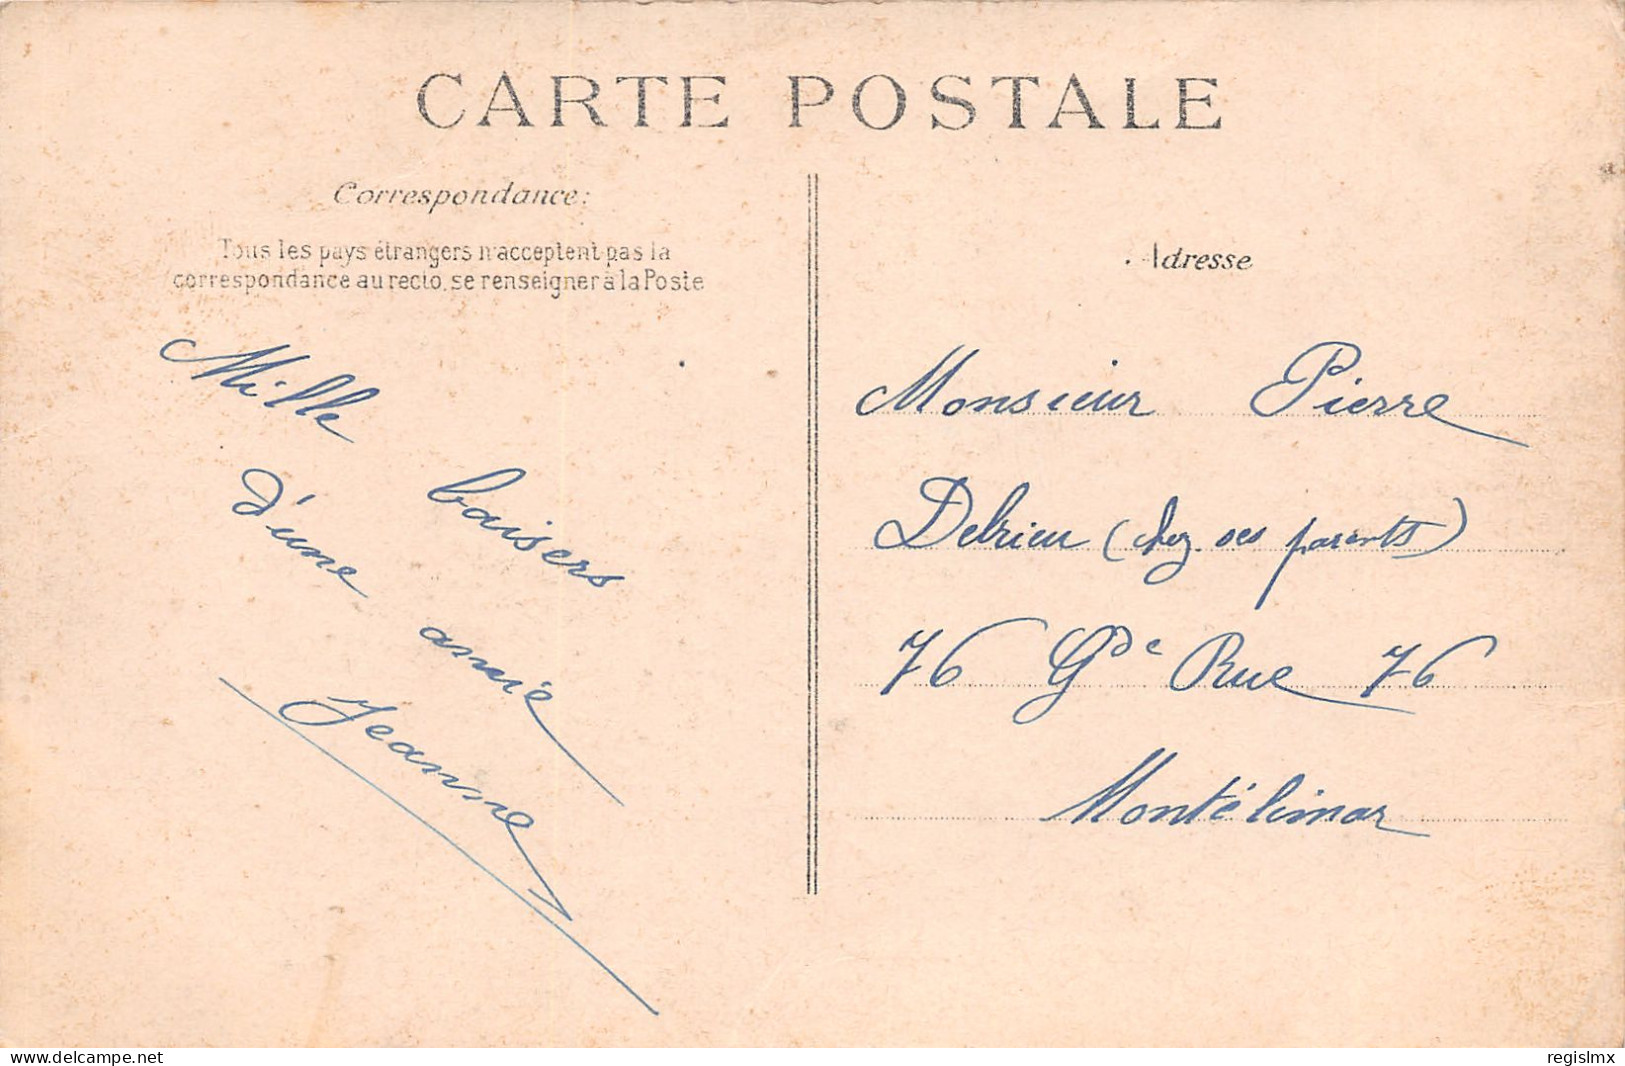 CARTE POSTALE
Correspondance:
Tous les pays étrangers n'acceptent pas la
correspondance au recto, se renseigner à la Poste
Mille baisers
d'une amie
Jeanne
Adresse
Monsieur Pierre
Delrieu (chez ses parents)
76 Gde Rue 76
Montélimar
www.delcampe.net
regislmx